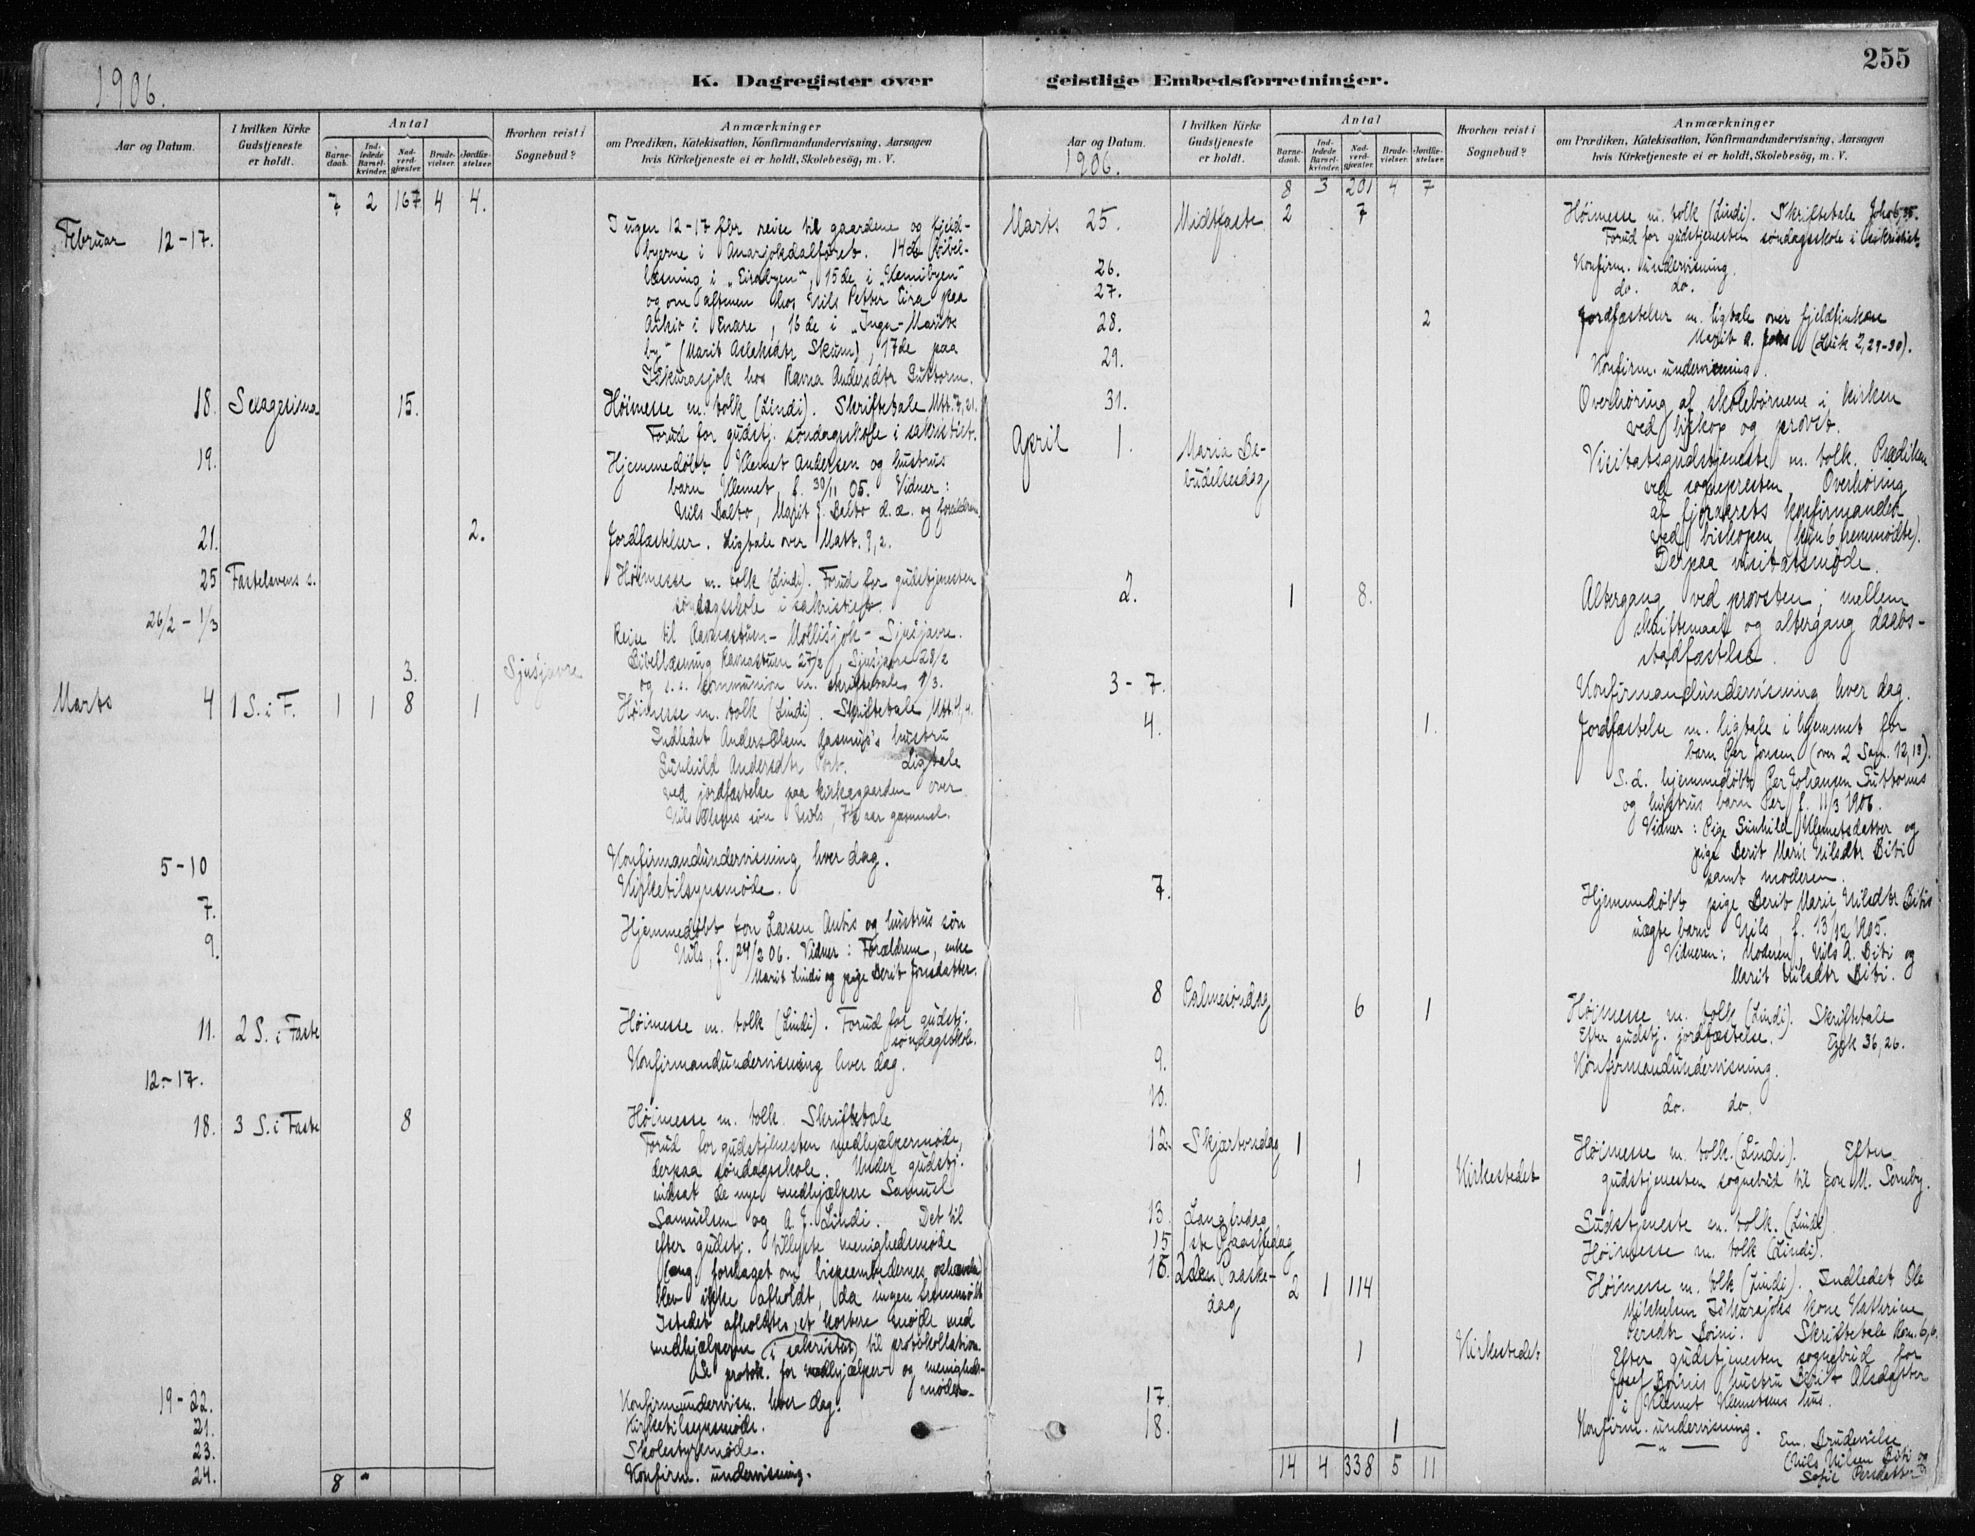 255
1906.
K. Dagregister over geistlige Embedsforretninger.
Aar og Datum.
I hvilken Kirke Gudstjeneste er holdt.
Antal
Barnedaab.
Indledede Barselkvinder.
Nadverdgjæster.
Brudevielser.
Jordfæstelser.
Hvorhen reist i Sognebud?
Anmærkninger
om Prædiken, Katekisation, Konfirmandundervisning, Aarsagen
hvis Kirketjeneste ei er holdt, Skolebesøg, m. V.
7 2 167 4 4.
Februar 12-17. I ugen 12-17 fbr reise til gaardene og fjeld-
byerne i Anarjokdalføret. 14de bibel-
læsning i "Eirabyen", 15de i "Klemibyen"
og om aftenen hos Nils Petter Eira paa
i Enare, 16de i "Inga-Marits
by" (Marit Aslaksdtr Skum), 17de paa
Iskurasjok hos Ravna Andersdtr Guttorm.
18. Sexagesima 15. Høimesse m. tolk (Lindi). Skriftetale Mtt. 7,21.
Forud for gudstj. søndagsskole i sakristiet.
19. Hjemmedøbt Klemet Andersen og hustrus
barn Klemet, f. 30/11 05. Vidner:
Nils Balto, Marit J. Balto d.æ. og forældrene
21. 2. Jordfæstelser. Ligtale over Matt. 9,2.
25 Fastelavens s. Høimesse m. tolk (Lindi). Forud for gudstjenesten
søndagsskole i sakristiet.
26/2 - 1/3 Reise til Ravnastuen - Mollisjok - Sjusjavre.
Bibellæsning Ravnastuen 27/2, Sjusjavre 28/2
3. Sjusjavre og s. s. kommunion m. skriftetale 1/3.
Marts 4 1 S. i F. 1 1 8 1 Høimesse m. tolk (Lindi). Skriftetale Mtt. 4,4.
Indledet Anders Olsen Rasmus's hustru
Gunhild Andersdtr Port. Ligtale
ved jordfæstelse paa kirkegaarden over
Nils Olsens søn Nils, 7½ aar gammel.
5-10 Konfirmandundervisning hver dag.
7. Kirketilsynsmøde.
9. Hjemmedøbt Jon Larsen Antis og hustrus søn
Nils, f. 24/2 06. Vidner: Forældrene, enke
Marit Lindi og pige Berit Jonsdatter.
11. 2 S. i Faste Høimesse m. tolk (Lindi). Forud for gudstj.
søndagsskole.
12.-17. Konfirmandundervisning hver dag.
18. 3 S. i Faste 8 Høimesse m. tolk. Skriftetale
Forud for gudstjenesten medhjælpermøde,
derpaa søndagsskole. Under gudstj.
indsat de nye medhjælpere Samuel
Samuelsen og A. J. Lindi. Det til
efter gudstj. tillyste menighedsmøde
(ang. forslaget om bispeembedernes ophævelse)
blev ikke afholdt, da ingen fremmødte
Istedet afholdtes et kortere møde med
medhjælperne (i sakristiet) til protokollation.
Se protok. for medhjælper- og menigheds-
møder.
19-22. Konfirm.undervisn. hver dag.
21. Kirketilsynsmøde.
23. Skolestyrsmøde.
24. Konfirm. undervisning.
8 "
Aar og Datum.
1906.
I hvilken Kirke Gudstjeneste er holdt.
Antal
Barnedaab.
Indledede Barselkvinder.
Nadverdgjæster.
Brudevielser.
Jordfæstelser.
Hvorhen reist i Sognebud?
Anmærkninger
om Prædiken, Katekisation, Konfirmandundervisning, Aarsagen
hvis Kirketjeneste ei er holdt, Skolebesøg, m. V.
8 3 201 4 7
Marts 25. Midtfaste 2 7 Høimesse m. tolk (Lindi). Skriftetale Joh. 6,35.
Forud for gudstjenesten søndagsskole i sakristiet.
26. Konfirm. undervisning.
27. do. do.
28. 2 Jordfæstelser m. ligtale over fjeldfinkone
Marit A. (Luk 2,29-30).
29. Konfirm. undervisning.
31. Overhøring af skolebørnene i kirken
ved biskop og provst.
April 1. Maria Be-
budelsesdag Visitatsgudstjeneste m. tolk. Prædiken
ved sognepresten. Overhøring
af fjoraarets konfirmander
ved biskopen (kun 6 fremmødte).
Derpaa visitatsmøde.
2. 1 8. Altergang ved provsten; mellem
skriftemaal og altergang daabs-
stadfæstelse.
3-7. Konfirmandundervisning hver dag.
4. 1. Jordfæstelse m. ligtale i hjemmet for
barn Per Jonsen (over 2 Sam. 12,18).
S. d. hjemmedøbt Per Johansen Guttorms
og hustrus barn Per f. 11/3 1906.
Vidner: Pige Gunhild Klemetsdatter og
pige Berit Marie Nilsdtr Biti
samt moderen.
7. Hjemmedøbt pige Berit Marie Nilsdtr Bitis
uægte barn Nils, f. 13/12 1905.
Vidnerne: Moderen, Nils A. Biti og
Marit Nilsdtr Biti.
8 Palmesøndag 6 1 Høimesse m. tolk (Lindi). Skriftetale
Efter gudstj. jordfæstelse. Ezek 36,26.
9. Konfirmandundervisning.
10. do. do.
12. Skjærtorsdag 1 Høimesse m. tolk. (Lindi). Efter
1 Kirkestedet gudstjenesten sognebud til Jon M. Somby.
13. Langfredag Gudstjeneste m. tolk. (Lindi)
15 1ste Paaskedag Høimesse m. tolk (Lindi).
16. 2den Paaske-
dag 2 1 114 Høimesse m. tolk (Lindi). Indledet Ole
Mikkelsen Iskurasjoks kone Kathrine
Persdtr Boini. Skriftetale Rom. 6,6.
1 Kirkestedet: Efter gudstjenesten sognebud for
Josef Boinis hustru Berit Olsdatter
i Klemet Klemetsens hus.
17. Konfirm. undervisning.
18. 1 — " — En Brudevielse
(Nils Nilsen Biti og
Sofie Persdatt.)
14 4 338 5 11